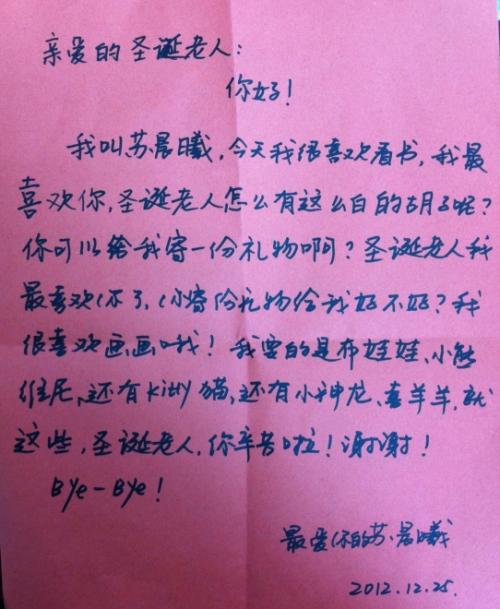 亲爱的圣诞老人:
你好!
我叫苏晨曦,今天我很喜欢看书,我最
喜欢你,圣诞老人怎么有这么白的胡子呢?
你可以给我寄一份礼物啊?圣诞老人我
最喜欢你了,你寄份礼物给我好不好?我
很喜欢画画哦!我要的是布娃娃、小熊
维尼、还有kitty猫,还有小神龙、喜羊羊,就
这些,圣诞老人,你辛苦啦!谢谢!
Bye-Bye!
最爱你的苏晨曦
2012.12.25.